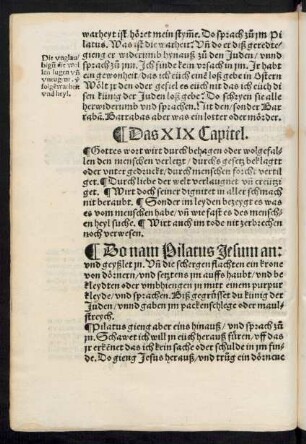 warheyt ist höret mein stym̃e. Do sprach zů jm Pi
latus. Was ist die warheit? Vñ do er diß geredte/
gieng er widerumb hynauß zů den Juden/ vnnd
sprach zů jnn. Ich finde kein vrsach in jm. Jr habt
ein gewonheit/ das ich euch eine loß gebe in Ostern
Wölt jr den oder gefelt es euch mit das ich euch den
künig der Juden loß gebe? Do schryen sie alle
herwiderumb vnd sprachen/ Nit den/ sonder Bar
rabã. Barrabas aber was ein lotter oder mörder.
Die vnglau
bigñ die wöl
len lugen vñ
vnrugm. ÿ
folgt warheit
vnd heyl.
¶ Das XIX Capitel.
¶ Gottes wort wirt durch behagen oder wolgefal
len den menschen verletzt/ durchs gesetz beklagt
oder vnter gedruckt/ durch menschen forcht vertil
get. ¶ Durch liebe der welt verlaugnet vñ creütz
get. ¶ Wirt doch seiner dignitet in aller schmach
nit beraubt. ¶ Sonder im leyden bezeygt es was
es vom menschen habe/ vñ wie fast es des mensch
en heyl suche. ¶ Wirt auch im tode nit zerbrochen
noch verwesen.
¶ Do nam Pilatus Jesum an:
vnd geyßlet jn. Vñ die schergen flachten ein krone
von dörnern/ vnd setzten jm auffs haubt/ vnd be
kleydten oder vmbhiengen jn mitt einem purpur
kleyde/ vnd sprachen. Biß gegrüsset du künig der
Juden/ vnnd gaben jm packenschlege oder maul
streych.
¶ Pilatus gieng aber eins hinauß/ vnd sprach zů
jn. Schawet ich will jn euch herauß füren/ vff das
jr erkẽnet das ich kein sache oder schulde in jm fin
de. Do gieng Jesus herauß/ vnd trůg ein dörnene